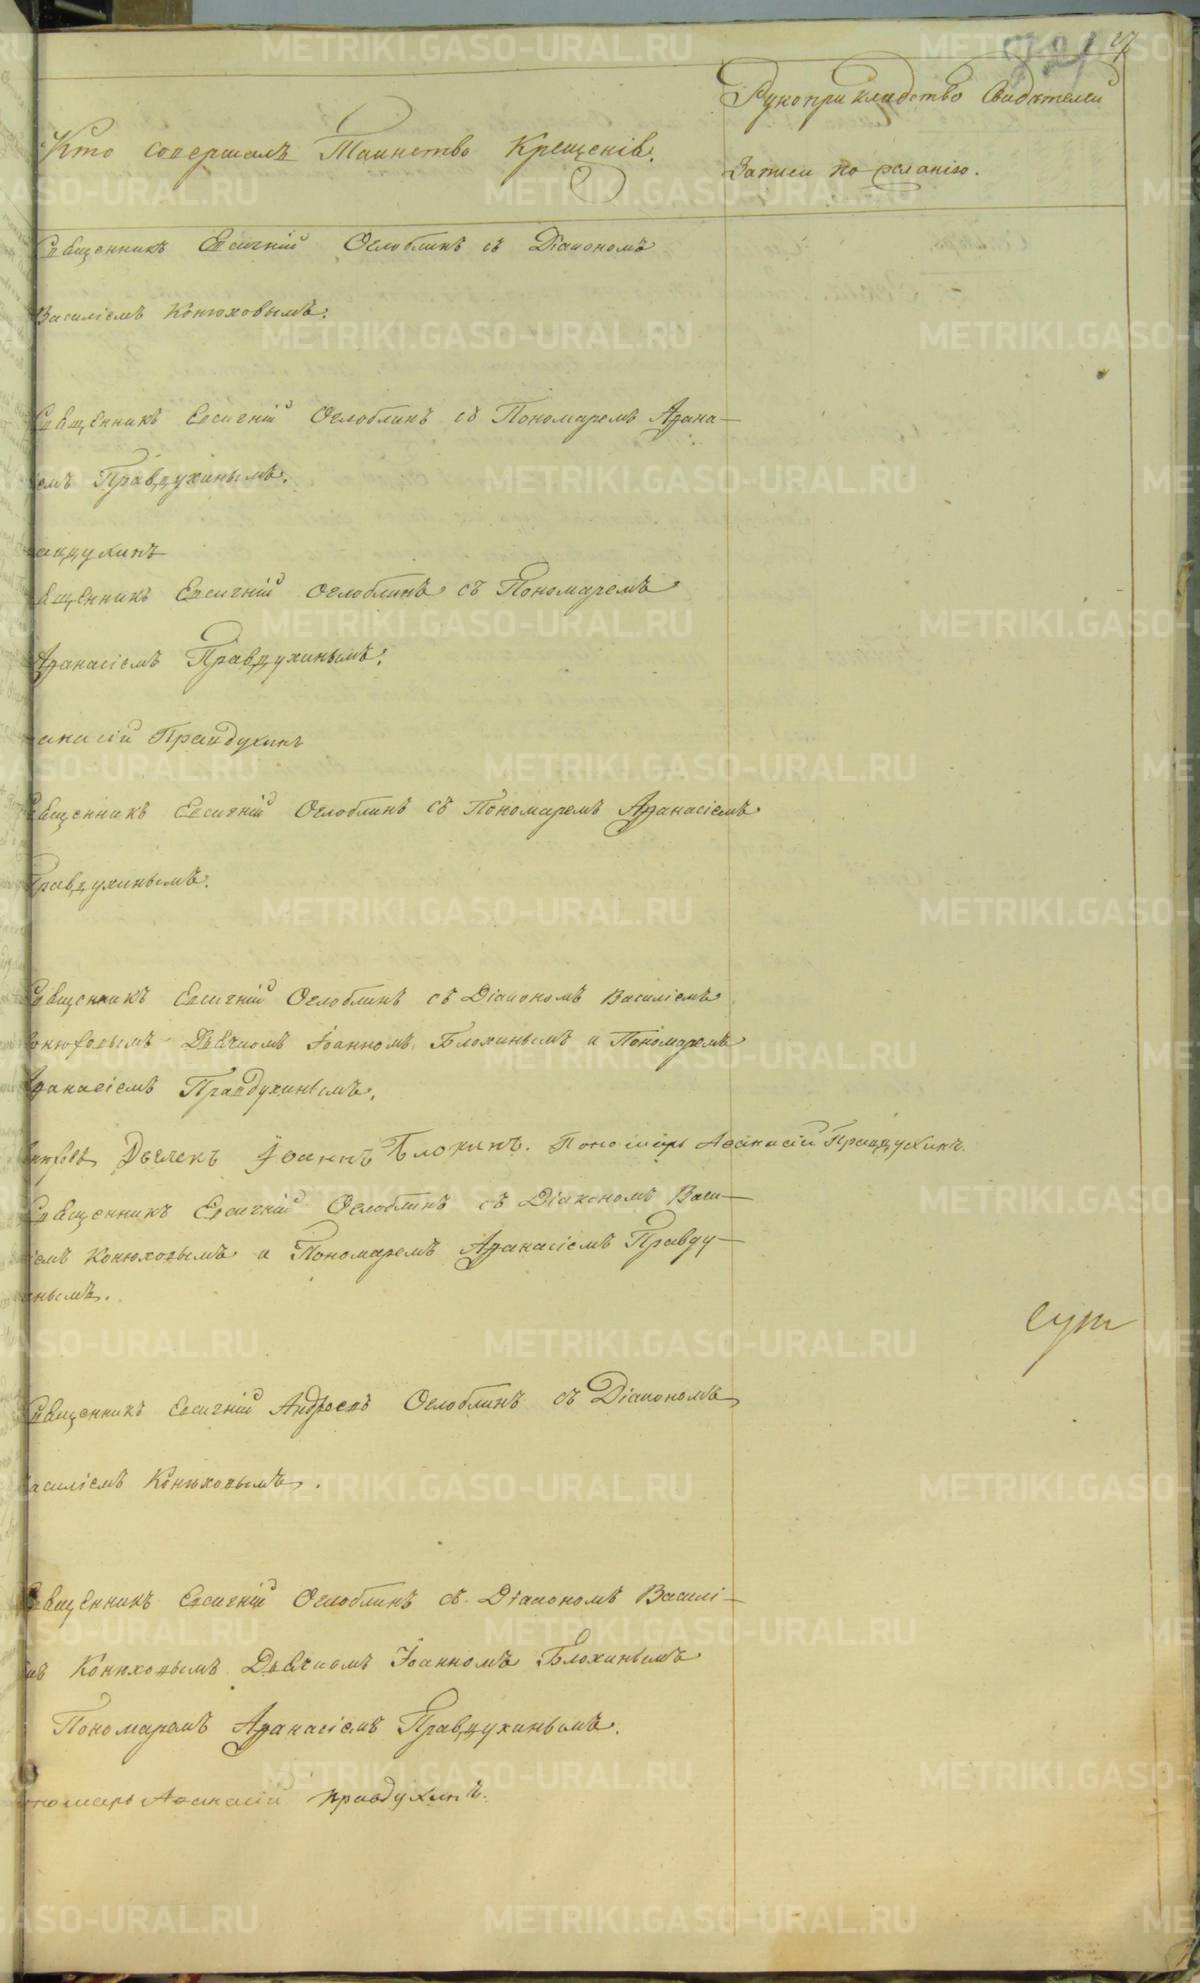 Рукоприкладство Свидетелей
Кто совершалъ Таинство Крещенія.
записи по желанію.
Священникъ Евсигній Оглоблинъ съ Діакономъ
Василіемъ Конюховымъ.
Священникъ Евсигній Оглоблинъ съ Пономаремъ Афана-
емъ Правдухинымъ.
авдухинъ
вященникъ Евсигній Оглоблинъ съ Пономаремъ
Афанасіемъ Правдухинымъ.
анасій Правдухинъ
Священникъ Евсигній Оглоблинъ съ Пономаремъ Афанасіемъ
Правдухинымъ.
Священникъ Евсигній Оглоблинъ съ Діакономъ Василіемъ
онюховымъ Дьячкомъ Іоанномъ Блохинымъ и Пономаремъ
Афанасіемъ Правдухинымъ.
Дьячекъ Іоаннъ Блохинъ. Пономарь Аѳанасій Правдухинъ.
Священникъ Евсигній Оглоблинъ съ Діакономъ Васи-
іемъ Конюховымъ и Пономаремъ Афанасіемъ Правду-
инымъ.
Священникъ Евсигній Андреевъ Оглоблинъ съ Діакономъ
Василіемъ Конюховымъ.
Священникъ Евсигній Оглоблинъ съ Діакономъ Василі-
емъ Конюховымъ Дьячкомъ Іоанномъ Блохинымъ
Пономаремъ Афанасіемъ Правдухинымъ.
ономарь Аѳанасій Правдухинъ.
METRIKI.GASO-URAL.RU